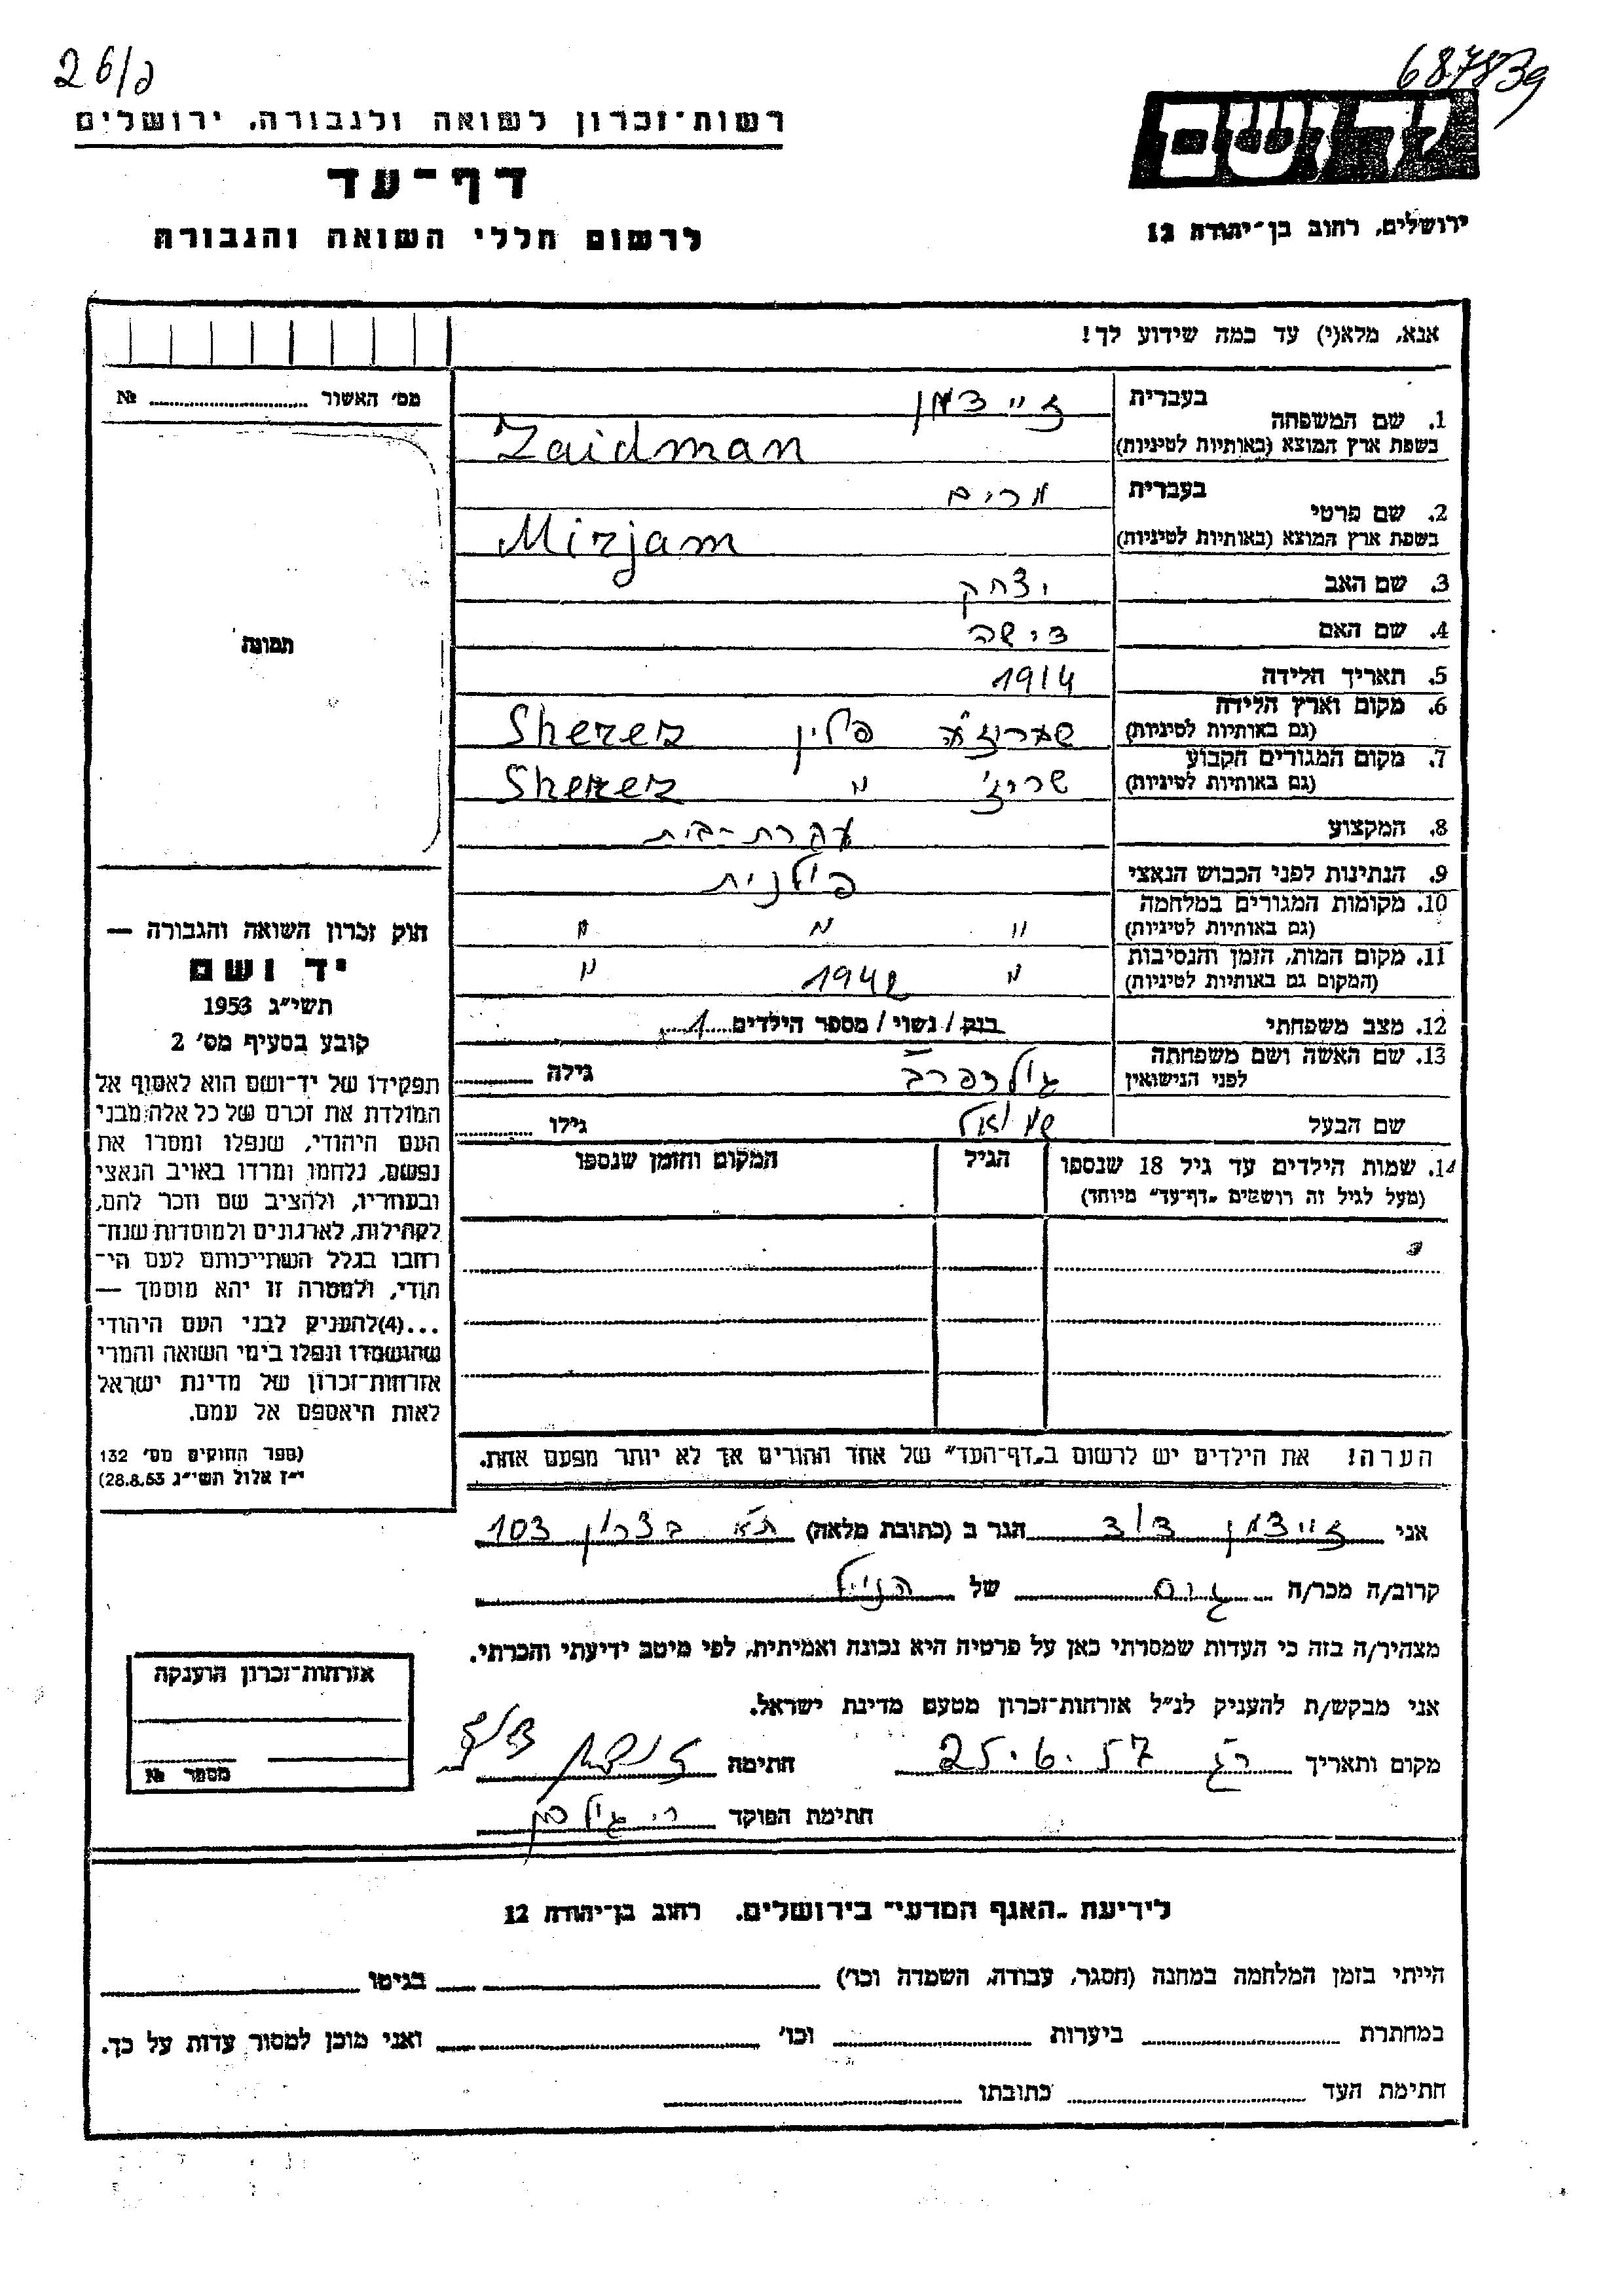 26/ג
687839
רשות־זכרון לשואה ולגבורה, ירושלים
ידושם
דף־עד
ירושלים, רחוב בן־יהודה 12
לרשום חללי השואה והגבורה
אנא, מלא(י) עד כמה שידוע לך!
מס' האשור № 
1. שם המשפחה
בעברית זיידמן
בשפת ארץ המוצא (באותיות לטיניות) Zaidman
2. שם פרטי
בעברית מרים
בשפת ארץ המוצא (באותיות לטיניות) Mirjam
3. שם האב יצחק
4. שם האם
תמונה
5. תאריך הלידה 1914
6. מקום וארץ הלידה
(גם באותיות לטיניות) פולין
7. מקום המגורים הקבוע
(גם באותיות לטיניות) "
8. המקצוע עקרת-בית
9. הנתינות לפני הכבוש הנאצי פולנית
10. מקומות המגורים במלחמה
(גם באותיות לטיניות) " " "
11. מקום המות, הזמן והנסיבות
(המקום גם באותיות לטיניות) " 1942 "
12. מצב משפחתי רווק / נשוי / מספר הילדים 1
13. שם האשה ושם משפחתה
לפני הנישואין גולדפרב גילה
שם הבעל שמואל גילו
14. שמות הילדים עד גיל 18 שנספו הגיל המקום והזמן שנספו
(מעל לגיל זה רושמים "דף־עד" מיוחד)
הערה! את הילדים יש לרשום ב"דף־העד" של אחד ההורים אך לא יותר מפעם אחת.
חוק זכרון השואה והגבורה —
יד ושם
תשי"ג 1953
קובע בסעיף מס' 2
תפקידו של יד־ושם הוא לאסוף אל
המולדת את זכרם של כל אלה מבני
העם היהודי, שנפלו ומסרו את
נפשם, נלחמו ומרדו באויב הנאצי
ובעוזריו, ולהציב שם וזכר להם,
לקהילות, לארגונים ולמוסדות שנח־
רבו בגלל השתייכותם לעם הי־
הודי, ולמטרה זו יהא מוסמך —
...(4)להעניק לבני העם היהודי
שהושמדו ונפלו בימי השואה והמרי
אזרחות־זכרון של מדינת ישראל
לאות היאספם אל עמם.
(ספר החוקים מס' 132
י"ז אלול תשי"ג 28.8.53)
אני זיידמן דוד הגר ב (כתובת מלאה) ת"א בצרון 103
קרוב/ה מכר/ה גיס של הנ"ל
מצהיר/ה בזה כי העדות שמסרתי כאן על פרטיה היא נכונה ואמיתית, לפי מיטב ידיעתי והכרתי.
אני מבקש/ת להעניק לנ"ל אזרחות־זכרון מטעם מדינת ישראל.
מקום ותאריך ר"ג 25.6.57 חתימה זיידמן דוד
חתימת הפוקד
אזרחות־זכרון הוענקה
מספר №
לידיעת "האגף המדעי" בירושלים, רחוב בן־יהודה 12
הייתי בזמן המלחמה במחנה (הסגר, עבודה, השמדה וכו') בגיטו
במחתרת ביערות וכו' ואני מוכן למסור עדות על כך.
חתימת העד כתובתו